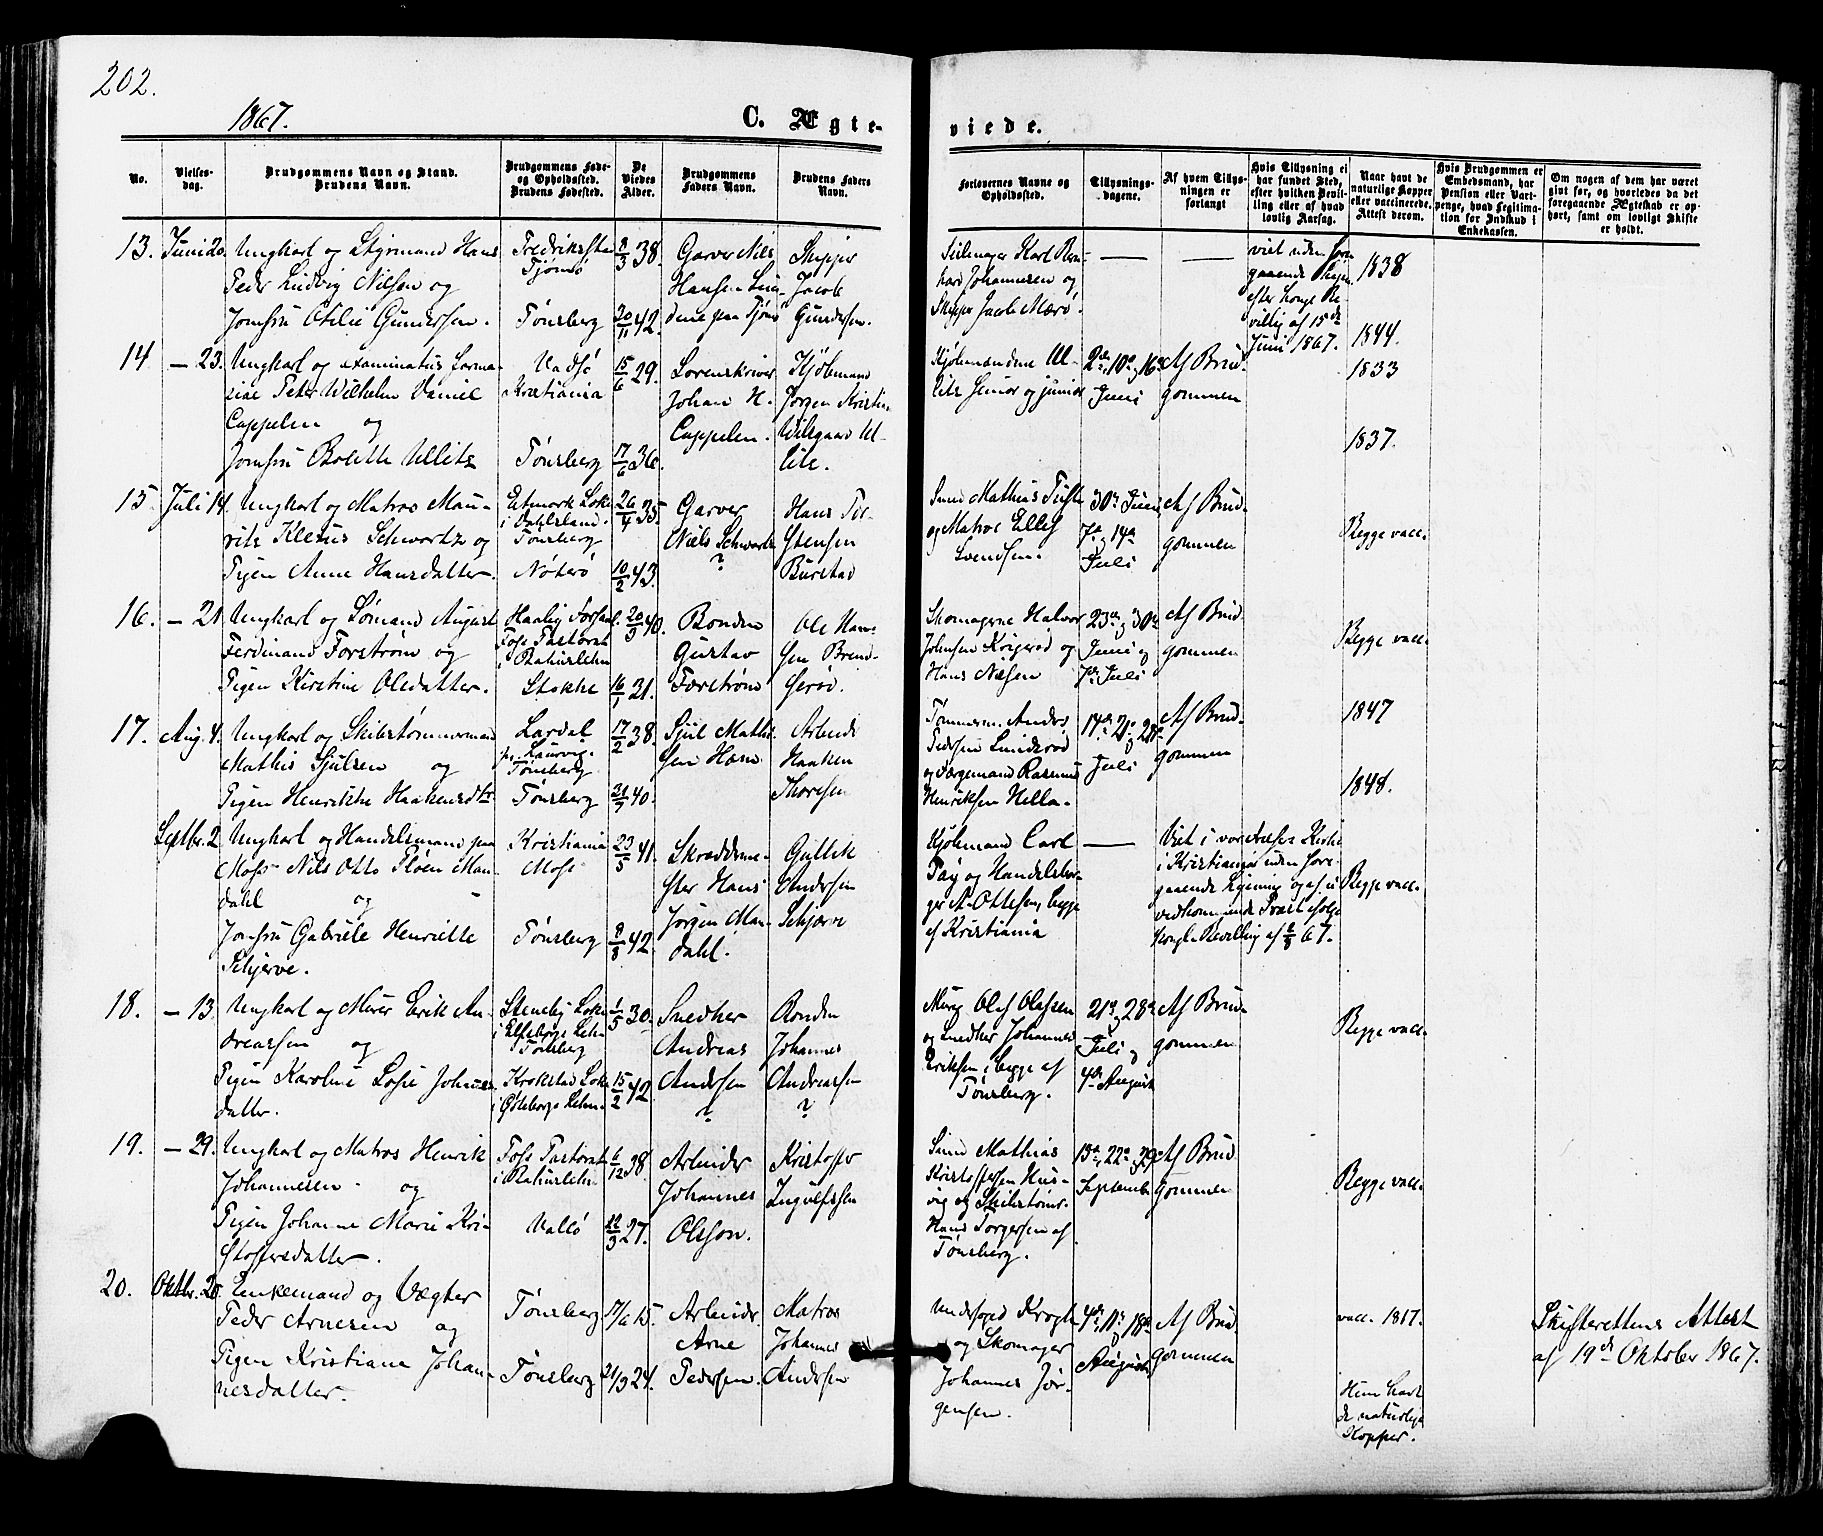 202.
1867.
C. Ægte-
viede.
No.
Vielses-
dag.
Brudgommens Navn og Stand.
Brudens Navn.
Brudgommens Føde-
og Opholdssted.
Brudens Fødested.
De
Viedes
Alder.
Brudgommens
Faders Navn.
Brudens Faders
Navn.
Forlovernes Navne og
Opholdssted.
Tillysnings-
dagene.
Af hvem Tillys-
ningen er
forlangt
Hvis Tillysning ei
har fundet Sted,
efter hvilken Bevil-
ling eller af hvad
lovlig Aarsag.
Naar havt de
naturlige Kopper
eller vaccinerede.
Attest derom.
Hvis Brudgommen er
Embedsmand, har
Pension eller Vart-
penge, hvad Legitima-
tion for Indskud i
Enkekassen.
Om nogen af dem har været
givt før, og hvorledes da det
foregaaende Ægteskab er op-
hørt, samt om lovligt Skifte
er holdt.
13. Juni 20.
Ungkarl og Styrmand Hans
Peder Ludvig Nilsen og
Jomfru Otilie Gundersen.
Tjømø
Tønsberg
8/3 38.
20/11 42.
Garver Nils
Hansen
paa Tjømø
Skipper
Jacob
Gundersen.
Seilmager Karl
Johannesen og
Skipper Jacob Mærø
— —
viet uden for
gaaende
efter Konge Be-
villig af 15de
Juni 1867.
1838
1844.
14 — 23.
Ungkarl og examinatus farma-
ciae Peter Wilhelm Daniel
Cappelen og
Jomfru Bolette Ullitz
Vadsø
Kristiania
Tønsberg
15/6 29.
17/6 36.
Sorenskriver
Johan H.
Cappelen.
Kjøbmand
Jørgen Kristi-
Wilsgaard Ul-
litz.
Kjøbmændene Ul-
litz Senior og junior
9de, 10de og 16de
Juni
Af Brud-
gommen
1833
1837.
15. Juli 14.
Ungkarl og Matros Mau-
ritz Schwartz og
Pigen Anne Hansdatter.
i Dahlsland.
Tønsberg
Nøterø
26/4 35.
10/2 43.
Garver
Niels Schwartz
?
Hans Tol-
stensen
Burstad
Smed Mathius
og Matros Ellef
Svendsen.
30te Juni,
7de og 14de
Juli
Af Brud-
gommen
Begge vacc.
16. — 21
Ungkarl og Sømand August
Ferdinand Forstrøm og
Pigen Kirstine Olsdatter.
Foss Pastorat
i Bahuslehn
Stokke
20/9 40.
16/1 31.
Bonden
Gustav
Forstrøm
Ole Han-
sen Brend-
serød.
Skomagerne Halvor
Johnsen og
Hans Nilsen
23de og 30te
Juni og
7de Juli
Af Brud-
gommen
Begge vacc.
17. Aug. 4.
Ungkarl og Skibstømmermand
Mathis Sjulsen og
Pigen Henrikke Haakensdtr
Lardal
pr. Laurvig.
Tønsberg
Tønsberg
17/2 38.
31/7 40.
Sjul Mathi-
sen Hæm
Arbeider
Haaken
Thoresen
Tømmerm. Anders
Pedersen
og Færgemand Rasmus
Henriksen Hella.
14de, 21de og 28de
Juli
Af Brud-
gommen
1847
1848.
Septbr. 2
Ungkarl og Handelsmand paa
Moss Nils Otto Fløen Man-
dahl og
Jomfru Gabriele Henriette
Schjerve.
Kristiania
Moss
Tønsberg
23/5 41.
8/8 42.
Skrædderme-
ster Hans
Jørgen Man-
dahl.
Gullik
Andersen
Schjærve
Kjøbmand Carl
Pay og Handelsbor-
ger A. Ottesen, begge
af Kristiania
—
Viet i vor Frelsers Kirke
i Kristiania uden fore-
gaaende Lysning og af u-
vedkommende Præst ifølge
kongl. Bevilling af 67.
Begge vacc.
18. — 13
Ungkarl og Murer Erik An-
dreassen og
Pigen Karoline Sofie Johans-
datter.
Steneby Sokn
i Elfsborgs Lehn
Tønsberg
Krokstad Sokn
i Gøteborgs Lehn
1/5 30.
15/2 42
Smedker
Andreas
Andersen
?
Bonden
Johannes
Andreassen
?
Murer Olof Olafsen
og Smedker Johannes
Eriksen, begge af
Tønsberg.
21de og 28de
Juli og
4de August
Af Brud-
gommen
Begge vacc.
19. — 29.
Ungkarl og Matros Henrik
Johannesen og
Pigen Johanne Marie Kri-
stofersdatter.
Foss Pastorat
i Bahuslehn
Vallø
6/12 38.
22/3 27.
Arbeider
Johannes
Olsson.
Kristoffer
Ingulfssen
Smed Mathias
Kristoffersen Hus-
vig og Skibstømr.
Hans Torgersen af
Tønsberg.
15de, 22de og 29de
September
Af Brud-
gommen
Begge vacc.
20. Oktbr. 20.
Enkemand og Vægter
Peder Arnesen og
Pigen Kristiane Johan-
nesdatter.
Tønsberg
Tønsberg
17/6 15.
21/9 24.
Arbeider
Arne
Pedersen
Matros
Johannes
Andersen
Underfoged Krogh
og Skomager
Johannes Jør-
gensen.
4de, 11te og 18de
August
Af Brud-
gommen
vacc. 1817.
Hun havt
de naturlige
Kopper.
Skifterettens Attest
af 19de Oktober 1867.